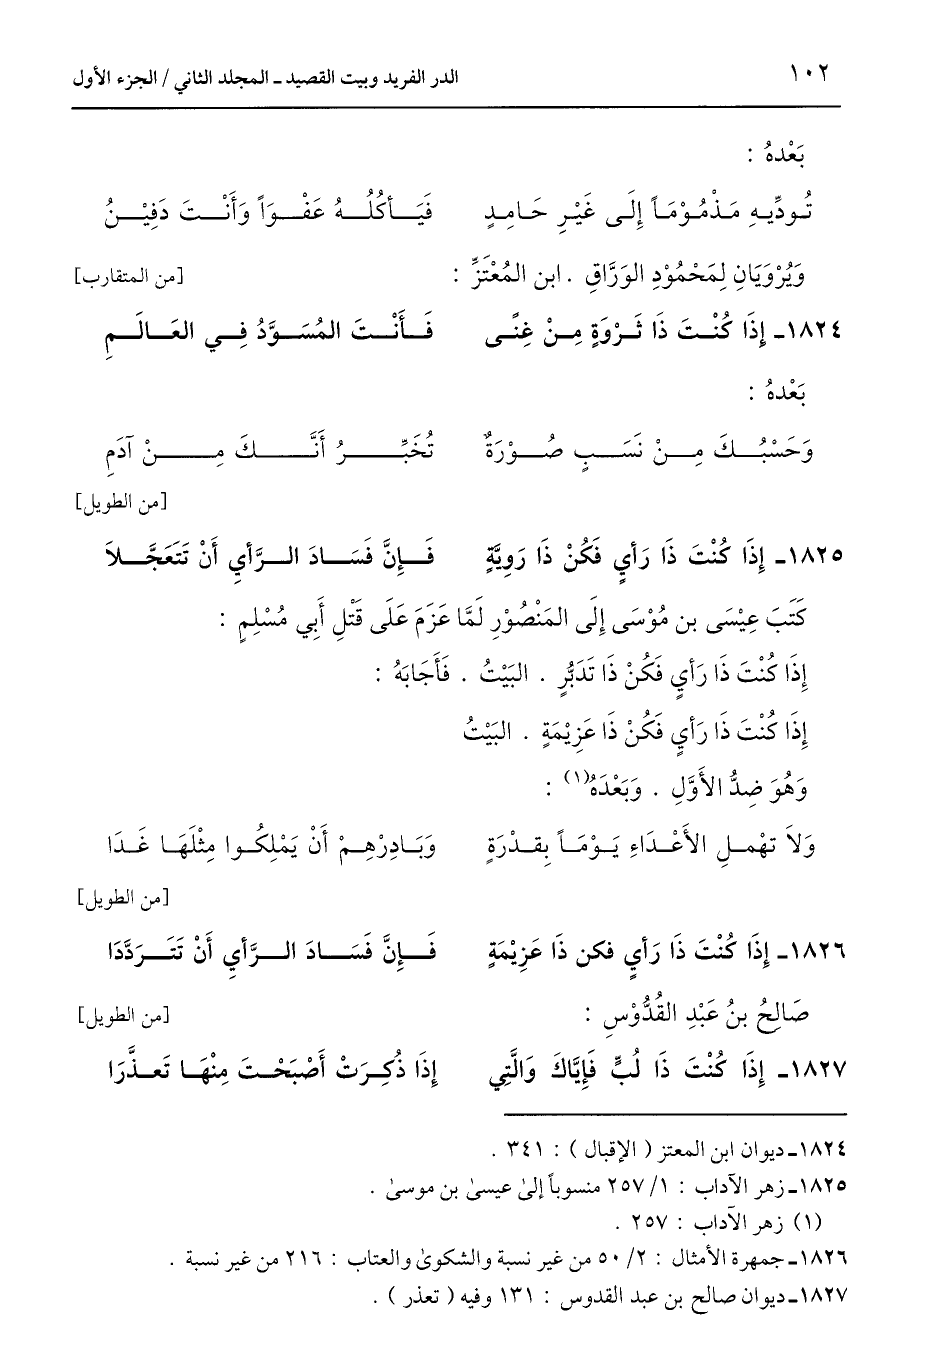 ١٠٢ الدر الفريد وبيت القصيد ـ المجلد الثاني / الجزء الأول
بَعْدهُ :
تُودِّيهِ مَذْمُوْمَاً إِلَى غَيْرِ حَامِدٍ فَيَأكُلُهُ عَفْوَاً وَأَنْتَ دَفِيْنُ
وَيُرْوَيَانِ لِمَحْمُوْدِ الوَرَّاقِ . ابن المُعْتَزِّ : [من المتقارب]
١٨٢٤ـ إِذَا كُنْتَ ذَا ثَرْوَةٍ مِنْ غِنًى فَأَنْتَ المُسَوَّدُ فِي العَالَمِ
بَعْدهُ :
وَحَسْبُكَ مِنْ نَسَبٍ صُوْرَةٌ تُخَبِّرُ أَنَّكَ مِنْ آدَمِ
[من الطويل]
١٨٢٥ـ إِذَا كُنْتَ ذَا رَأيٍ فَكُنْ ذَا رَوِيَّةٍ فَإِنَّ فَسَادَ الرَّأيِ أَنْ تَتَعَجَّلاَ
كَتَبَ عِيْسَى بن مُوْسَى إِلَى المَنْصُوْرِ لَمَّا عَزَمَ عَلَى قَتْلِ أَبِي مُسْلِمٍ :
إِذَا كُنْتَ ذَا رَأيٍ فَكُنْ ذَا تَدَبُّرٍ . البَيْتُ . فَأَجَابَهُ :
إِذَا كُنْتَ ذَا رَأيٍ فَكُنْ ذَا عَزِيْمَةٍ . البَيْتُ
وَهُوَ ضِدُّ الأَوَّلِ . وَبَعْدَهُ(١) :
وَلاَ تهْملِ الأَعْدَاءِ يَوْمَاً بِقدْرَةٍ وَبَادِرْهِمْ أَنْ يَمْلِكُوا مِثْلَهَا غَدَا
[من الطويل]
١٨٢٦ـ إِذَا كُنْتَ ذَا رَأيٍ فكن ذَا عَزِيْمَةٍ فَإِنَّ فَسَادَ الرَّأيِ أَنْ تَتَرَدَّدَا
صَالِحُ بنُ عَبْدِ القُدُّوْسِ : [من الطويل]
١٨٢٧ـ إِذَا كُنْتَ ذَا لُبٍّ فَإِيَّاكَ وَالَّتِي إِذَا ذُكِرَتْ أَصْبَحْتَ مِنْهَا تَعذَّرَا
١٨٢٤ـ ديوان ابن المعتز ( الإقبال ) : ٣٤١ .
١٨٢٥ـ زهر الآداب : ١/ ٢٥٧ منسوباً إلىٰ عيسىٰ بن موسىٰ .
(١) زهر الآداب : ٢٥٧ .
١٨٢٦ـ جمهرة الأمثال : ٢/ ٥٠ من غير نسبة والشكوىٰ والعتاب : ٢١٦ من غير نسبة .
١٨٢٧ـ ديوان صالح بن عبد القدوس : ١٣١ وفيه ( تعذر ) .